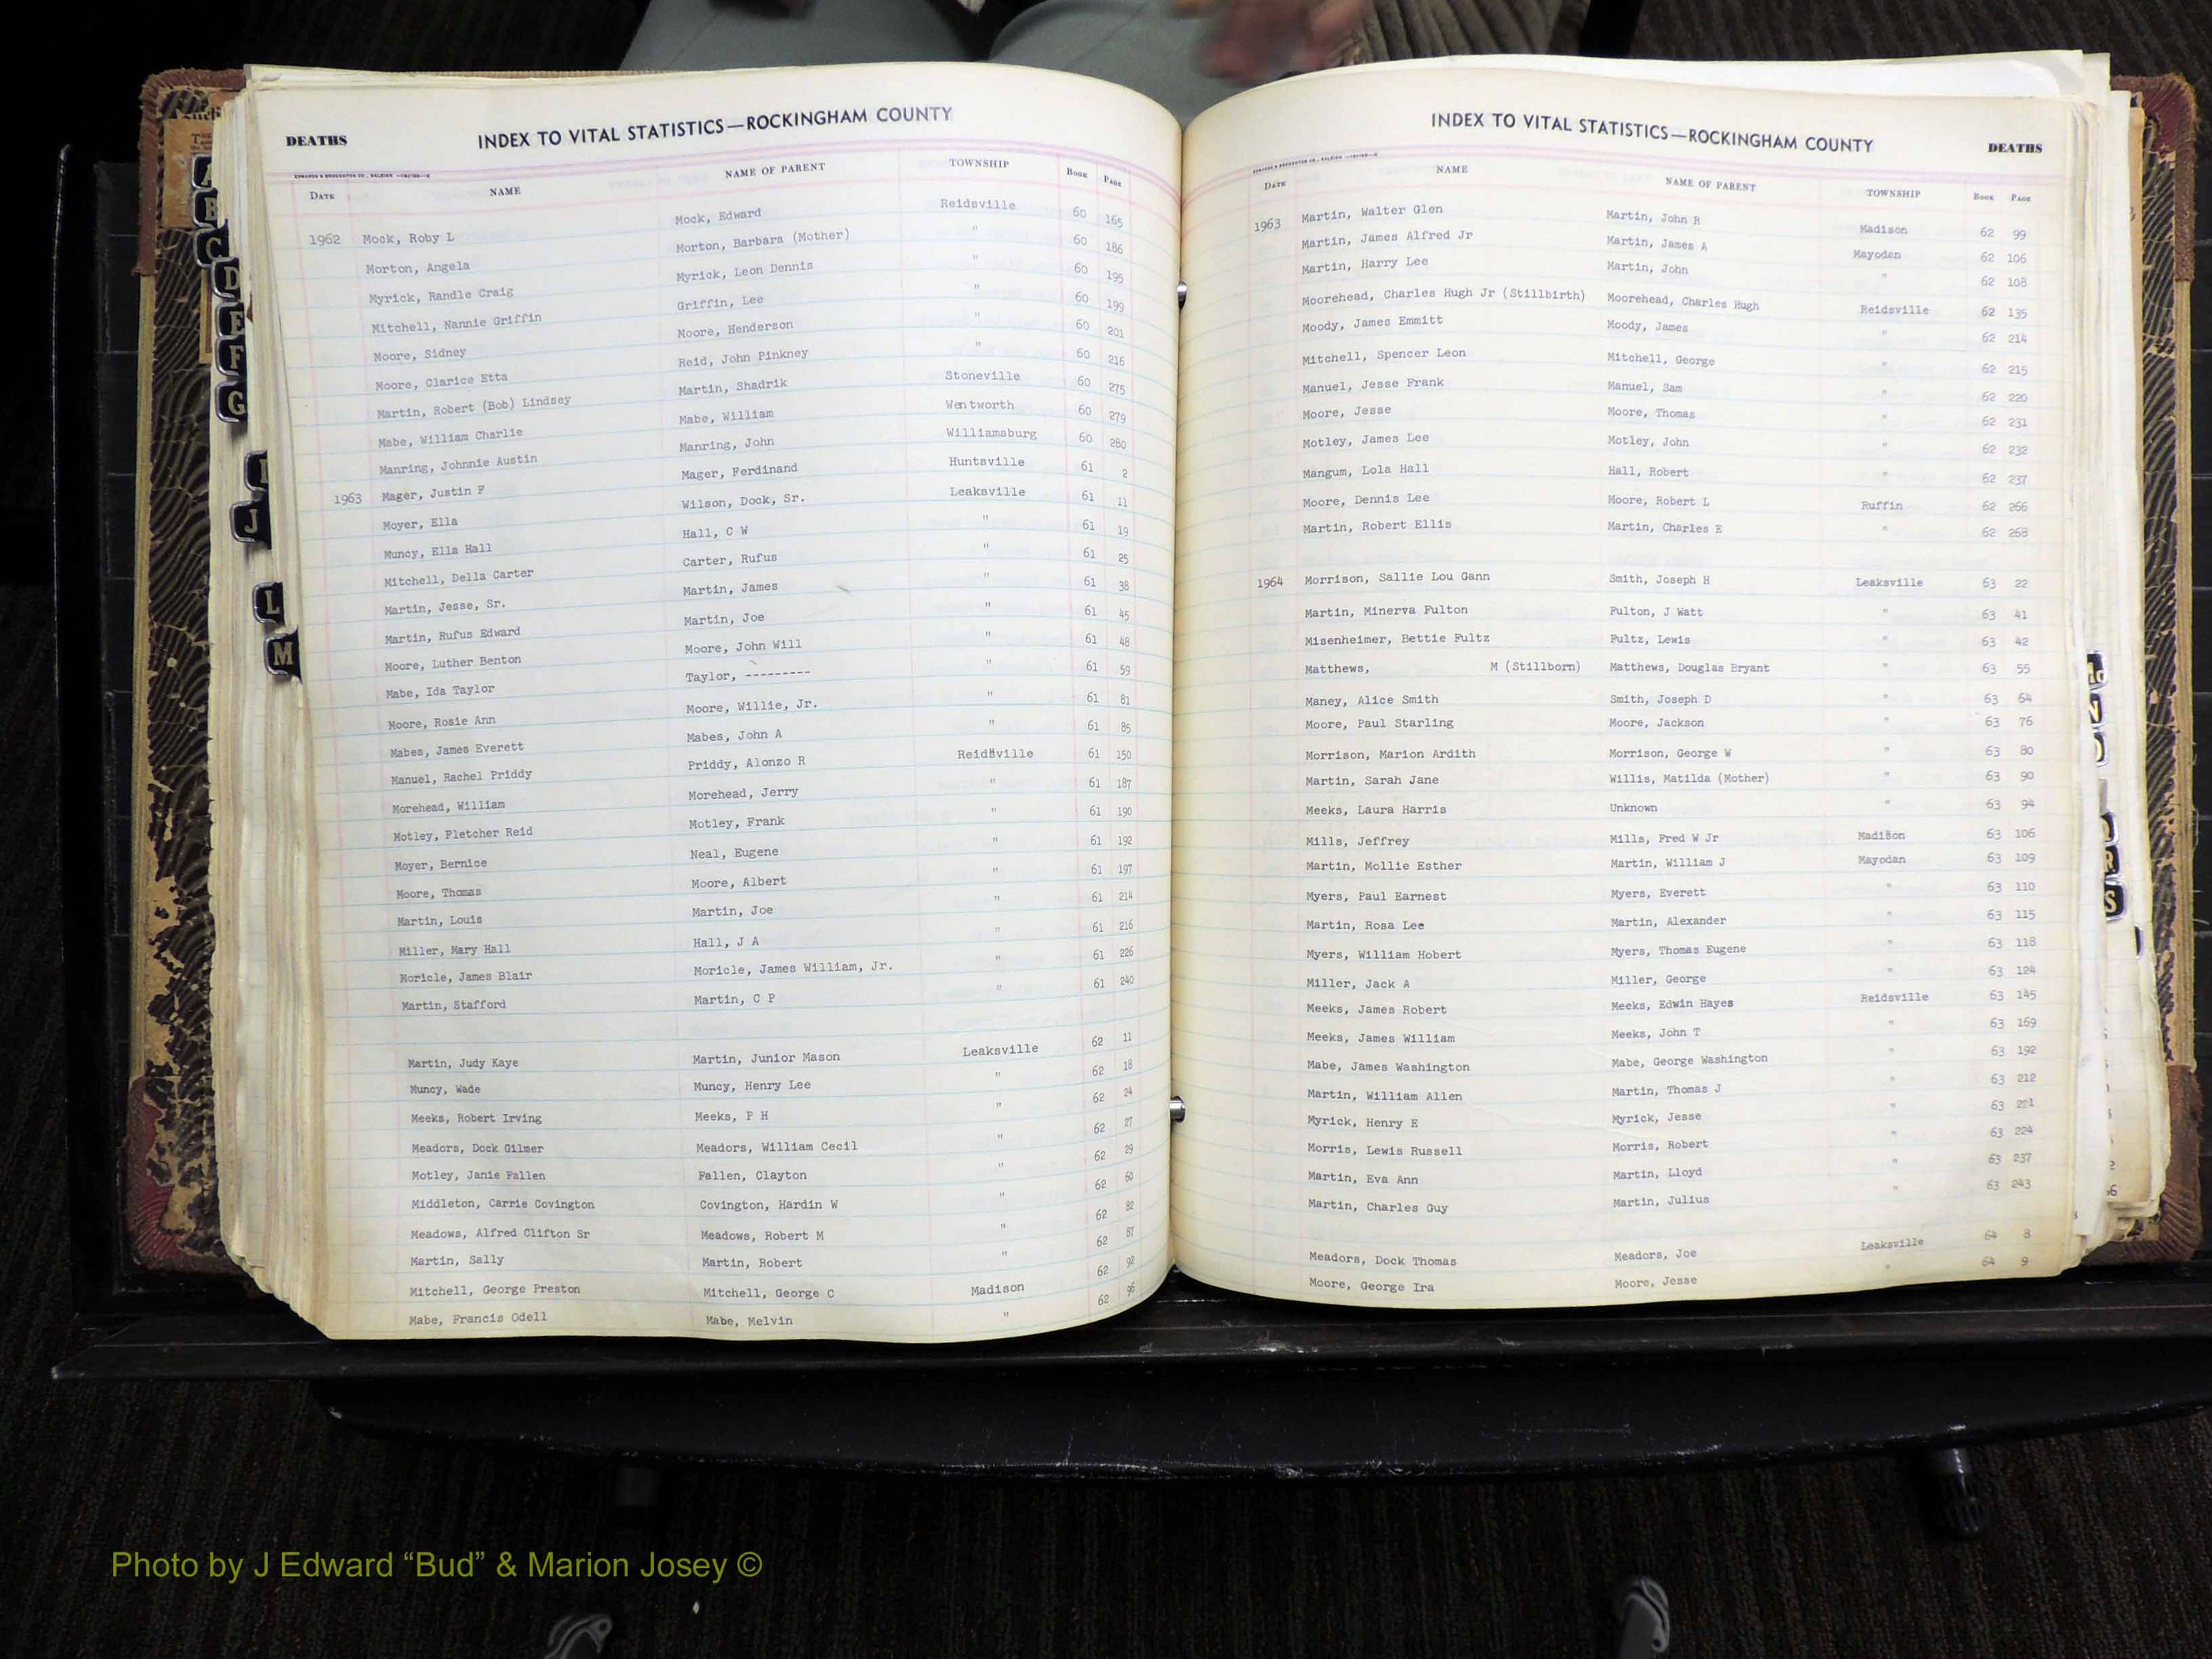 DEATHS INDEX TO VITAL STATISTICS—ROCKINGHAM COUNTY
DATE NAME NAME OF PARENT TOWNSHIP BOOK PAGE
1962 Mock, Roby L Mock, Edward Reidsville 60 165
Morton, Angela Morton, Barbara (Mother) " 60 186
Myrick, Randle Craig Myrick, Leon Dennis " 60 195
Mitchell, Nannie Griffin Griffin, Lee " 60 199
Moore, Sidney Moore, Henderson " 60 201
Moore, Clarice Etta Reid, John Pinkney " 60 216
Martin, Robert (Bob) Lindsey Martin, Shadrik Stoneville 60 275
Mabe, William Charlie Mabe, William Wentworth 60 279
Manring, Johnnie Austin Manring, John Williamsburg 60 280
1963 Mager, Justin F Mager, Ferdinand Huntsville 61 2
Moyer, Ella Wilson, Dock, Sr. Leaksville 61 11
Muncy, Ella Hall Hall, C W " 61 19
Mitchell, Della Carter Carter, Rufus " 61 25
Martin, Jesse, Sr. Martin, James " 61 38
Martin, Rufus Edward Martin, Joe " 61 45
Moore, Luther Benton Moore, John Will " 61 48
Mabe, Ida Taylor Taylor, --------- " 61 59
Moore, Rosie Ann Moore, Willie, Jr. " 61 81
Mabes, James Everett Mabes, John A " 61 85
Manuel, Rachel Priddy Priddy, Alonzo R Reidsville 61 150
Morehead, William Morehead, Jerry " 61 187
Motley, Fletcher Reid Motley, Frank " 61 190
Moyer, Bernice Neal, Eugene " 61 192
Moore, Thomas Moore, Albert " 61 197
Martin, Louis Martin, Joe " 61 214
Miller, Mary Hall Hall, J A " 61 216
Moricle, James Blair Moricle, James William, Jr. " 61 226
Martin, Stafford Martin, C P " 61 240
Martin, Judy Kaye Martin, Junior Mason Leaksville 62 11
Muncy, Wade Muncy, Henry Lee " 62 18
Meeks, Robert Irving Meeks, P H " 62 24
Meadors, Dock Gilmer Meadors, William Cecil " 62 27
Motley, Janie Fallen Fallen, Clayton " 62 29
Middleton, Carrie Covington Covington, Hardin W " 62 60
Meadows, Alfred Clifton Sr Meadows, Robert M " 62 82
Martin, Sally Martin, Robert " 62 87
Mitchell, George Preston Mitchell, George C Madison 62 92
Mabe, Francis Odell Mabe, Melvin " 62 96
INDEX TO VITAL STATISTICS—ROCKINGHAM COUNTY DEATHS
DATE NAME NAME OF PARENT TOWNSHIP BOOK PAGE
1963 Martin, Walter Glen Martin, John R Madison 62 99
Martin, James Alfred Jr Martin, James A Mayodan 62 106
Martin, Harry Lee Martin, John " 62 108
Moorehead, Charles Hugh Jr (Stillbirth) Moorehead, Charles Hugh Reidsville 62 135
Moody, James Emmitt Moody, James " 62 214
Mitchell, Spencer Leon Mitchell, George " 62 215
Manuel, Jesse Frank Manuel, Sam " 62 220
Moore, Jesse Moore, Thomas " 62 231
Motley, James Lee Motley, John " 62 232
Mangum, Lola Hall Hall, Robert " 62 237
Moore, Dennis Lee Moore, Robert L Ruffin 62 266
Martin, Robert Ellis Martin, Charles E " 62 268
1964 Morrison, Sallie Lou Gann Smith, Joseph H Leaksville 63 22
Martin, Minerva Fulton Fulton, J Watt " 63 41
Misenheimer, Bettie Fultz Fultz, Lewis " 63 42
Matthews, M (Stillborn) Matthews, Douglas Bryant " 63 55
Maney, Alice Smith Smith, Joseph D " 63 64
Moore, Paul Starling Moore, Jackson " 63 76
Morrison, Marion Ardith Morrison, George W " 63 80
Martin, Sarah Jane Willis, Matilda (Mother) " 63 90
Meeks, Laura Harris Unknown " 63 94
Mills, Jeffrey Mills, Fred W Jr Madison 63 106
Martin, Mollie Esther Martin, William J Mayodan 63 109
Myers, Paul Earnest Myers, Everett " 63 110
Martin, Rosa Lee Martin, Alexander " 63 115
Myers, William Hobert Myers, Thomas Eugene " 63 118
Miller, Jack A Miller, George " 63 124
Meeks, James Robert Meeks, Edwin Hayes Reidsville 63 145
Meeks, James William Meeks, John T " 63 169
Mabe, James Washington Mabe, George Washington " 63 192
Martin, William Allen Martin, Thomas J " 63 212
Myrick, Henry E Myrick, Jesse " 63 221
Morris, Lewis Russell Morris, Robert " 63 224
Martin, Eva Ann Martin, Lloyd " 63 237
Martin, Charles Guy Martin, Julius " 63 243
Meadors, Dock Thomas Meadors, Joe Leaksville 64 8
Moore, George Ira Moore, Jesse " 64 9
A
B
C
D
E
F
G
J
L
M
N
R
S
Photo by J Edward “Bud” & Marion Josey ©